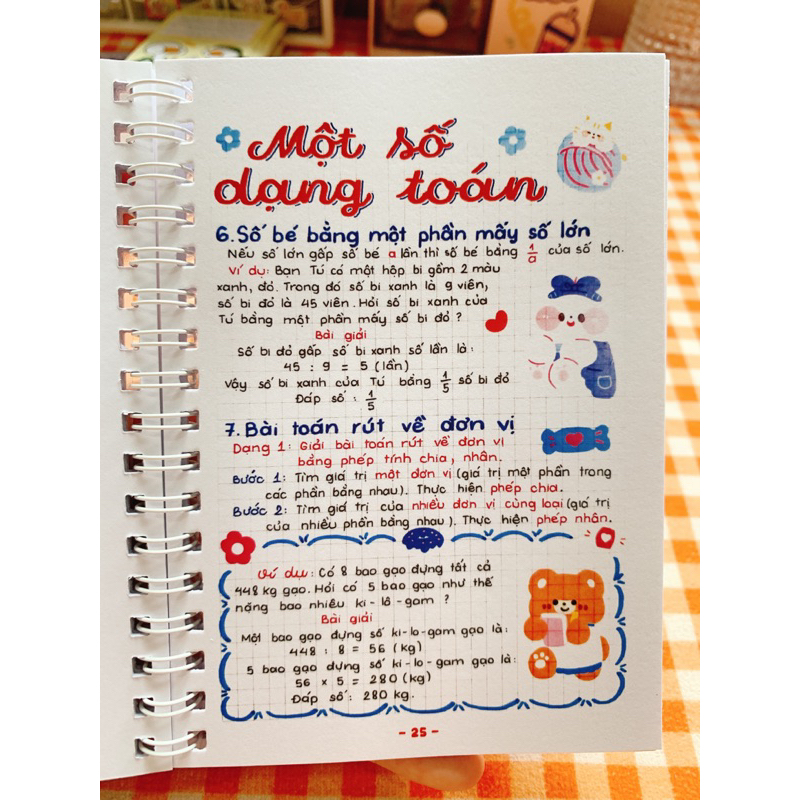 Một số
dạng toán
6. Số bé bằng một phần mấy số lớn
Nếu số lớn gấp số bé a lần thì số bé bằng 1/a của số lớn.
Ví dụ: Bạn Tú có một hộp bi gồm 2 màu
xanh, đỏ. Trong đó số bi xanh là 9 viên,
số bi đỏ là 45 viên. Hỏi số bi xanh của
Tú bằng một phần mấy số bi đỏ ?
Bài giải
Số bi đỏ gấp số bi xanh số lần là:
45 : 9 = 5 (lần)
Vậy số bi xanh của Tú bằng 1/5 số bi đỏ
Đáp số : 1/5
7. Bài toán rút về đơn vị
Dạng 1: Giải bài toán rút về đơn vị
bằng phép tính chia, nhân.
Bước 1: Tìm giá trị một đơn vị (giá trị một phần trong
các phần bằng nhau). Thực hiện phép chia.
Bước 2: Tìm giá trị của nhiều đơn vị cùng loại (giá trị
của nhiều phần bằng nhau). Thực hiện phép nhân.
Ví dụ: Có 8 bao gạo đựng tất cả
448 kg gạo. Hỏi có 5 bao gạo như thế
nặng bao nhiêu ki-lô-gam ?
Bài giải
Một bao gạo đựng số ki-lo-gam gạo là:
448 : 8 = 56 (kg)
5 bao gạo đựng số ki-lô-gam gạo là:
56 x 5 = 280 (kg)
Đáp số: 280 kg.
- 25 -